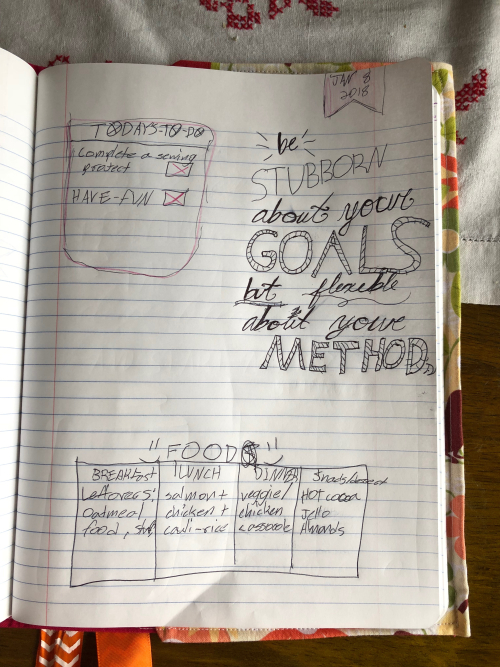 JAN 8
2018
TODAYS-TO-DO
Complete a sewing
project
HAVE-FUN
be
STUBBORN
about your
GOALS
but flexible
about your
METHODS
FOODS
BREAKfast
Leftovers,
Oatmeal
food,
LUNCH
salmon +
chicken +
cauli-rice
DINNER
veggie/
chicken
casserole
Snacks/dessert
Hot cocoa
Jello
Almonds